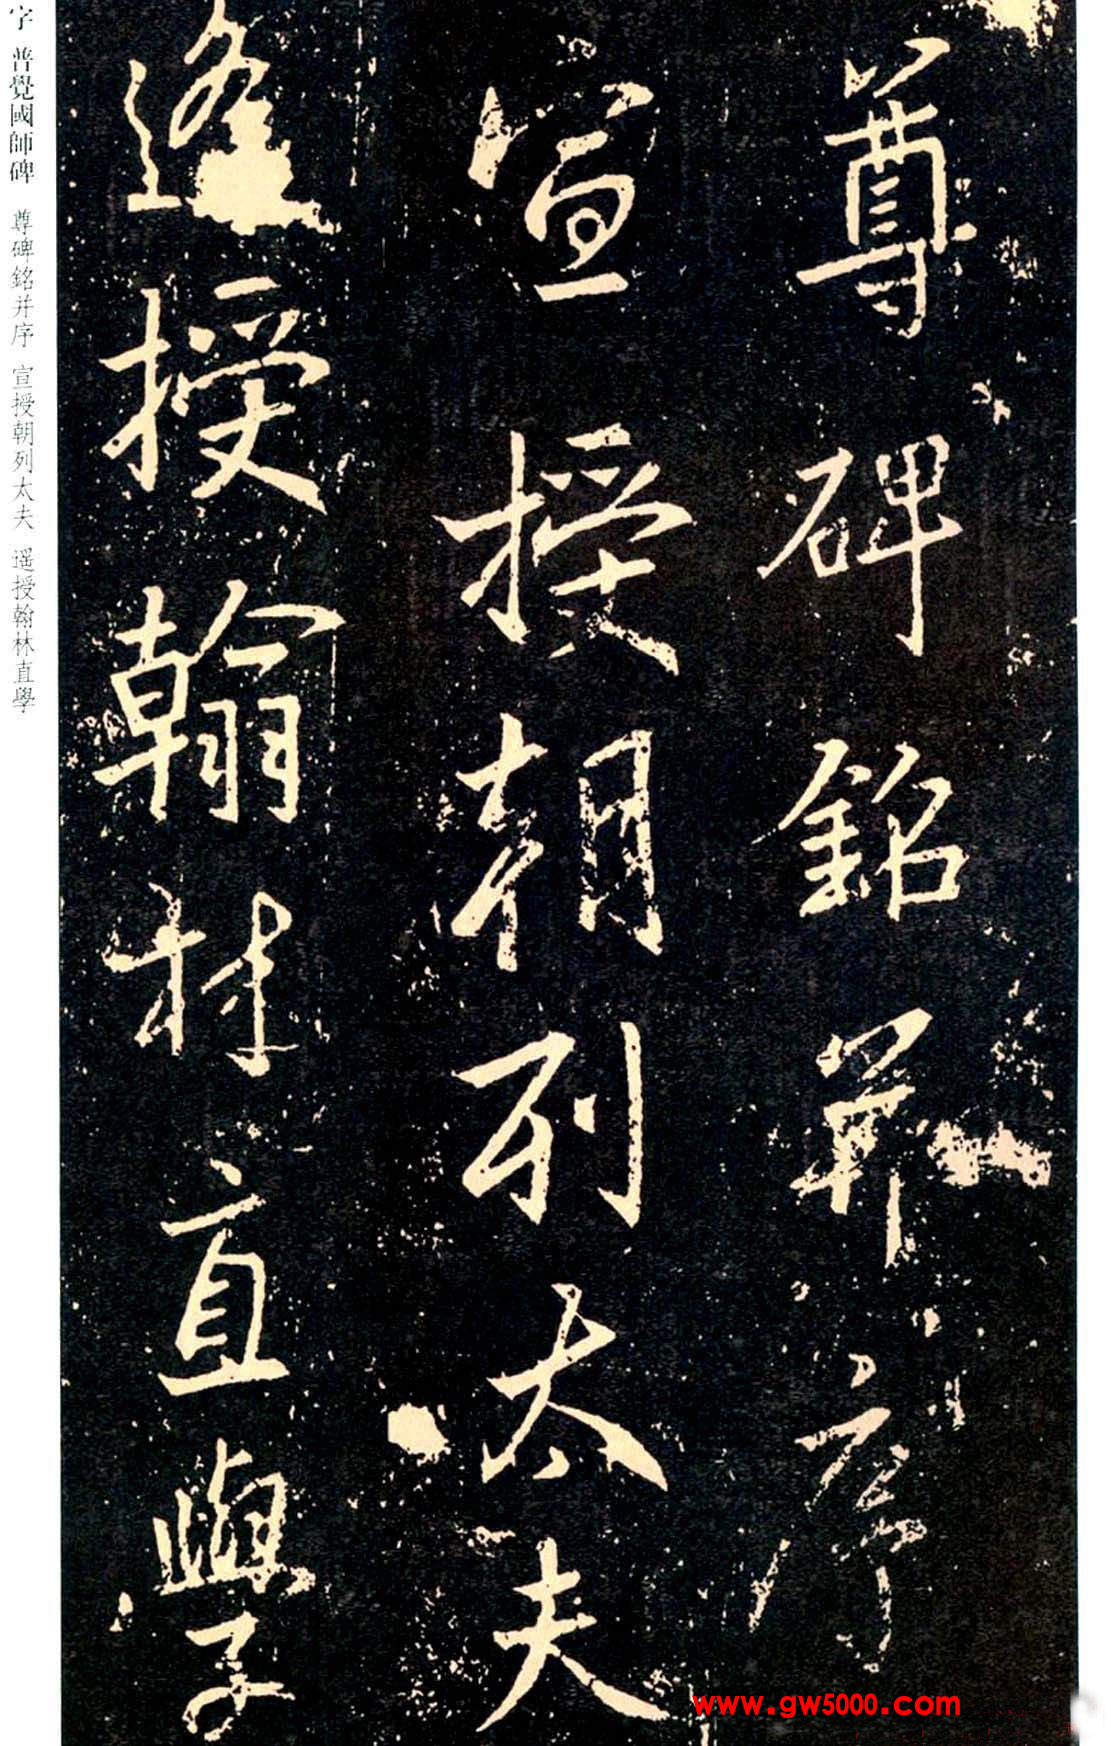 尊碑銘并序
宣授朝列太夫
遥授翰林直學
字 普覺國師碑 尊碑銘并序 宣授朝列太夫 遥授翰林直學
www.gw5000.com